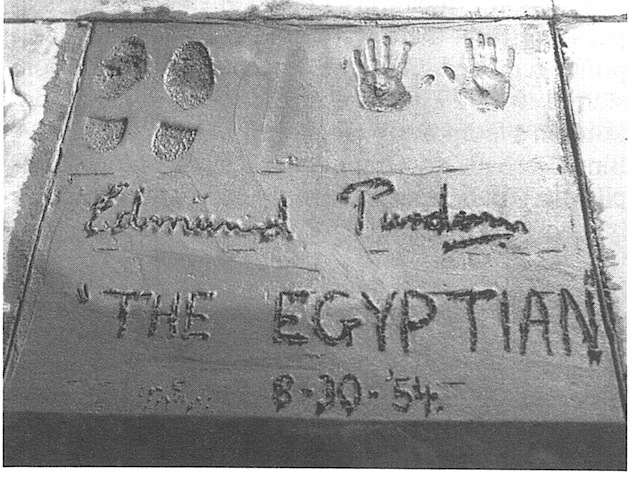 Edmund Purdom
"THE EGYPTIAN"
8-30-'54.